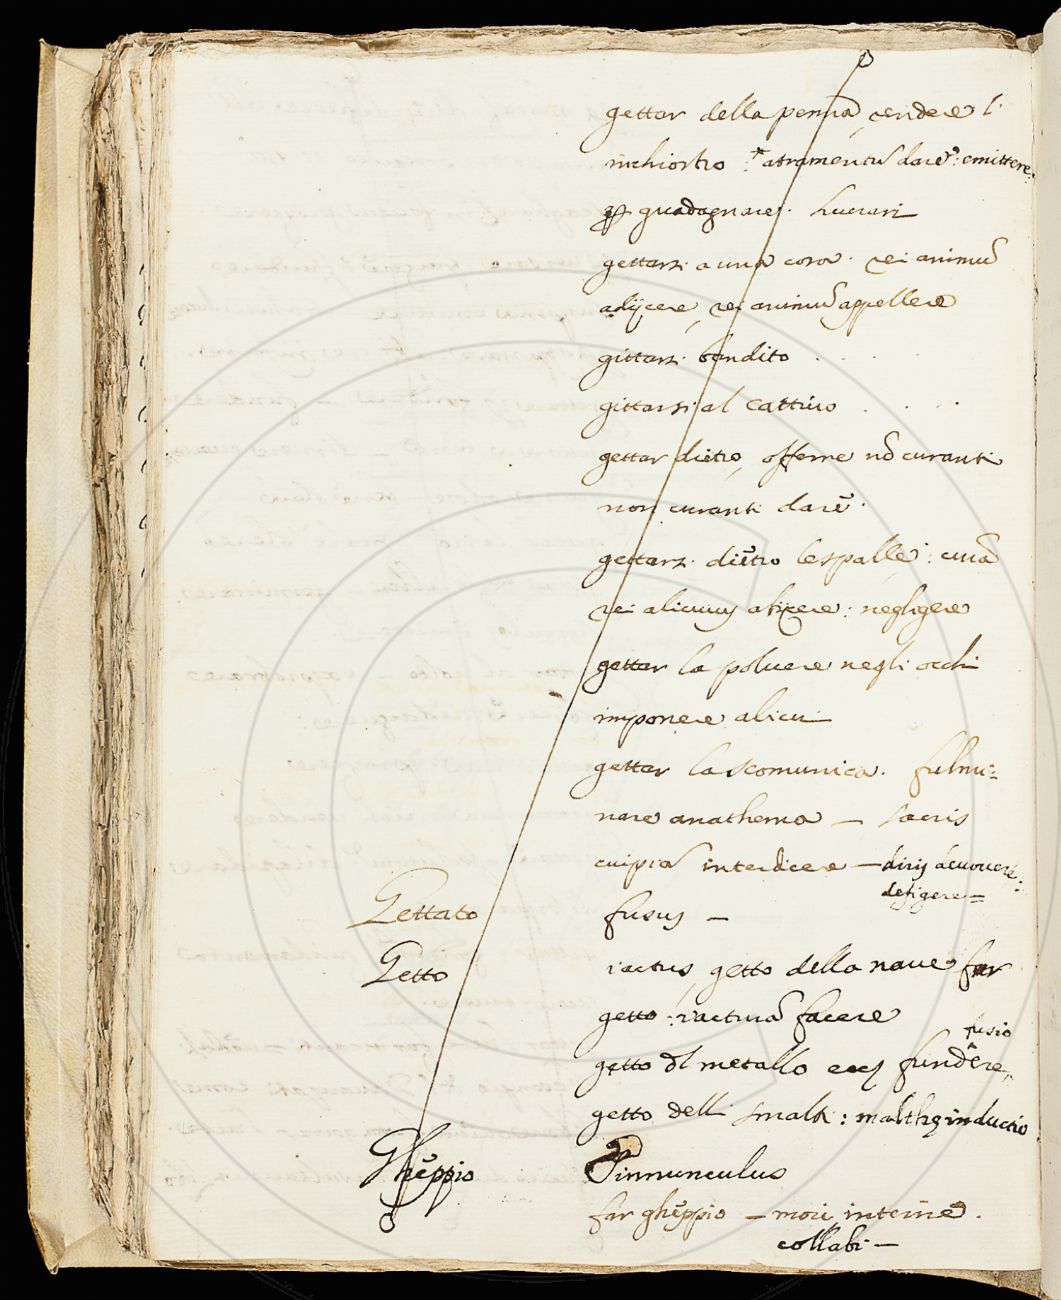 gettar della penna, rendere l'
inchiostro : atramentũ dare : emittere
guadagnare . lucrari
gettarsi a una cosa . rei animũ
adijcere, rei animũ appellere
gittarsi bandito . . . .
gittarsi al cattivo . . .
gettar dietro, offerre nõ curanti
non curanti dare .
gettarsi dietro le spalle : curã
rei alicuius abijcere : negligere
gettar la polvere negli occhi
imponere alicui
gettar la scomunica . fulmi=
nare anathema — sacris
interdicere — diris devovere :
defigere =
Gettato fusus —
Getto iactus, getto della nave far
getto : iacturã facere
fusio
getto di metallo fundere
getto delli smalti : inductio
Ghéppio Tinnunculus
far ghéppio — mori interire .
collabi —